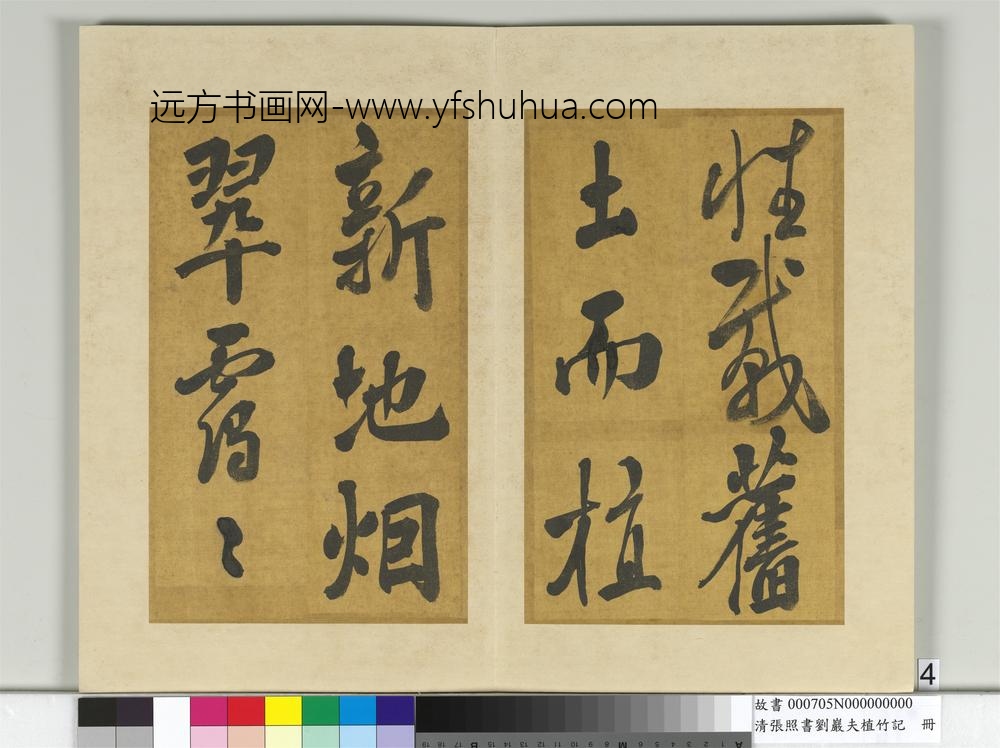 远方书画网-www.yfshuhua.com
性載舊
土而植
新地烟
翠靄〻
4
故書 000705N000000000
清張照書劉巖夫植竹記 冊